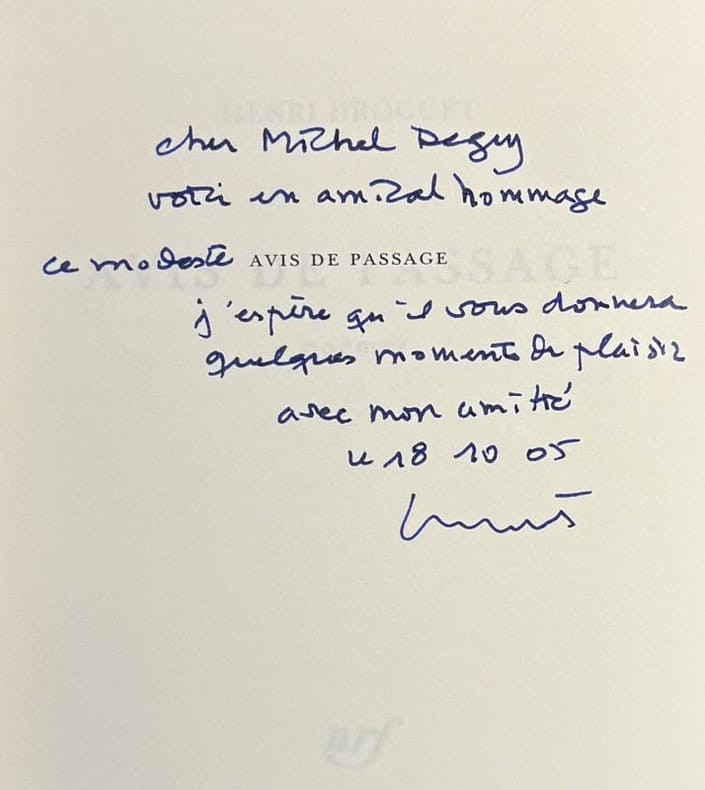 HENRI DROGUET
cher Michel Deguy
voici en amical hommage
ce modeste AVIS DE PASSAGE
AVIS DE PASSAGE
j'espère qu'il vous donnera
quelques moments de plaisir
poèmes
avec mon amitié
le 18 10 05
nrf